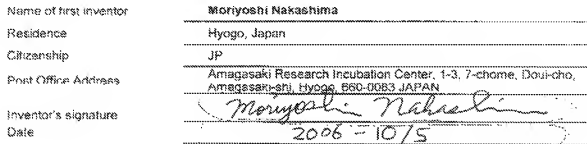 Name of first inventor Moriyoshi Nakashima
Residence Hyogo, Japan
Citizenship JP
Post Office Address Amagasaki Research Incubation Center, 1-3, 7-chome, Doui-cho,
Amagasaki-shi, Hyogo, 660-0083 JAPAN
Inventor's signature Moriyoshi Nakashima
Date 2006-10/5